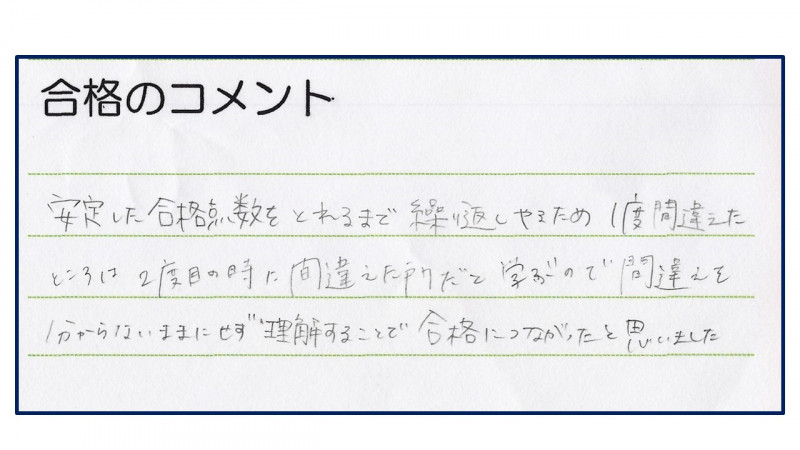 合格のコメント
安定した合格点数をとれるまで繰り返しやるため1度間違えた
ところは2度目の時に間違えた所だと学ぶので間違えを
分からないままにせず理解することで合格につながったと思いました